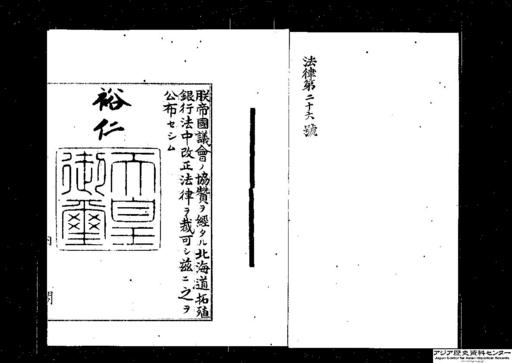 法律第二十六號
朕帝國議會ノ協贊ヲ經タル北海道拓殖
銀行法中改正法律ヲ裁可シ茲ニ之ヲ
公布セシム
裕仁
天皇
御璽
内
閣
アジア歴史資料センター
Japan Center for Asian Historical Records